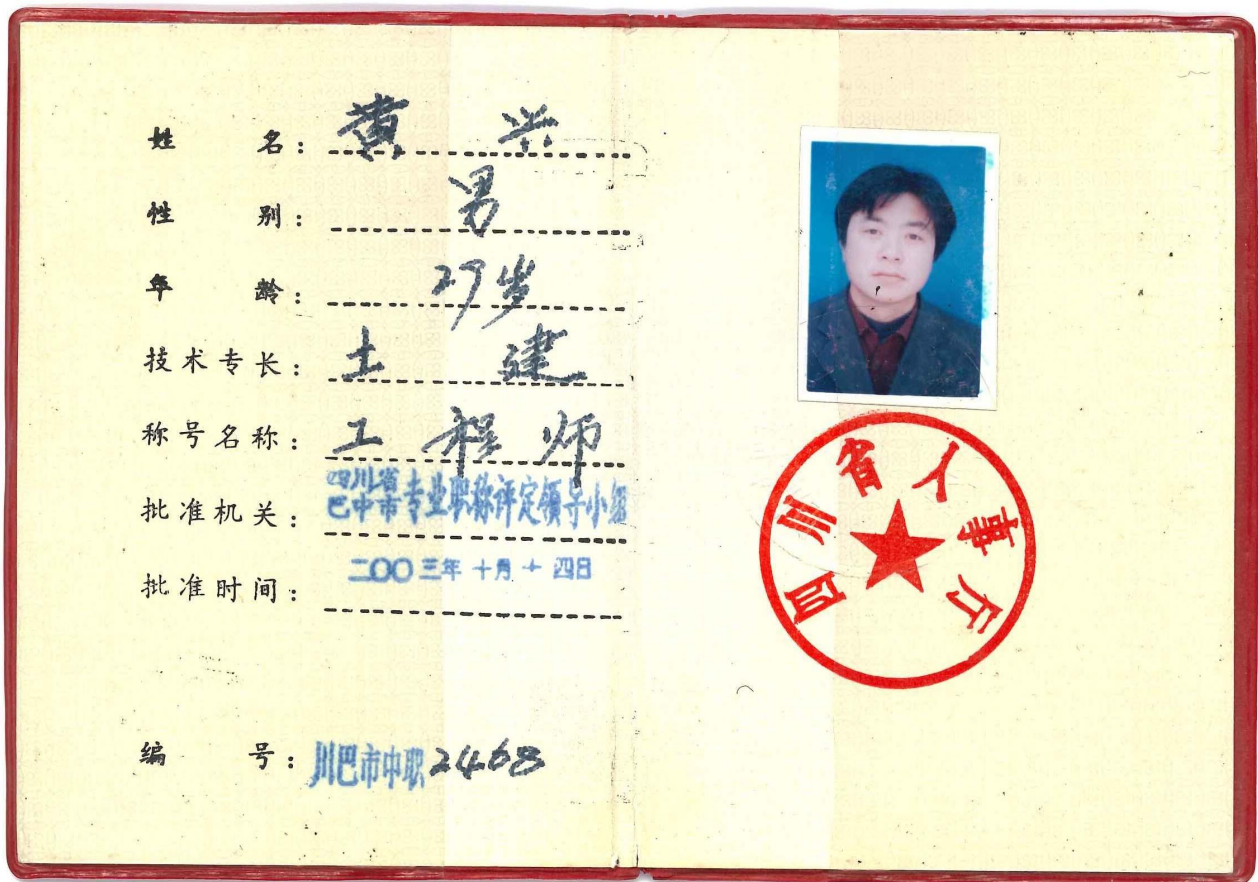 姓名：黄兴
性别：男
年龄：27岁
技术专长：土建
称号名称：工程师
批准机关：四川省巴中市专业职称评定领导小组
批准时间：二〇〇三年十月十四日
编号：川巴市中职2468
四川省人事厅